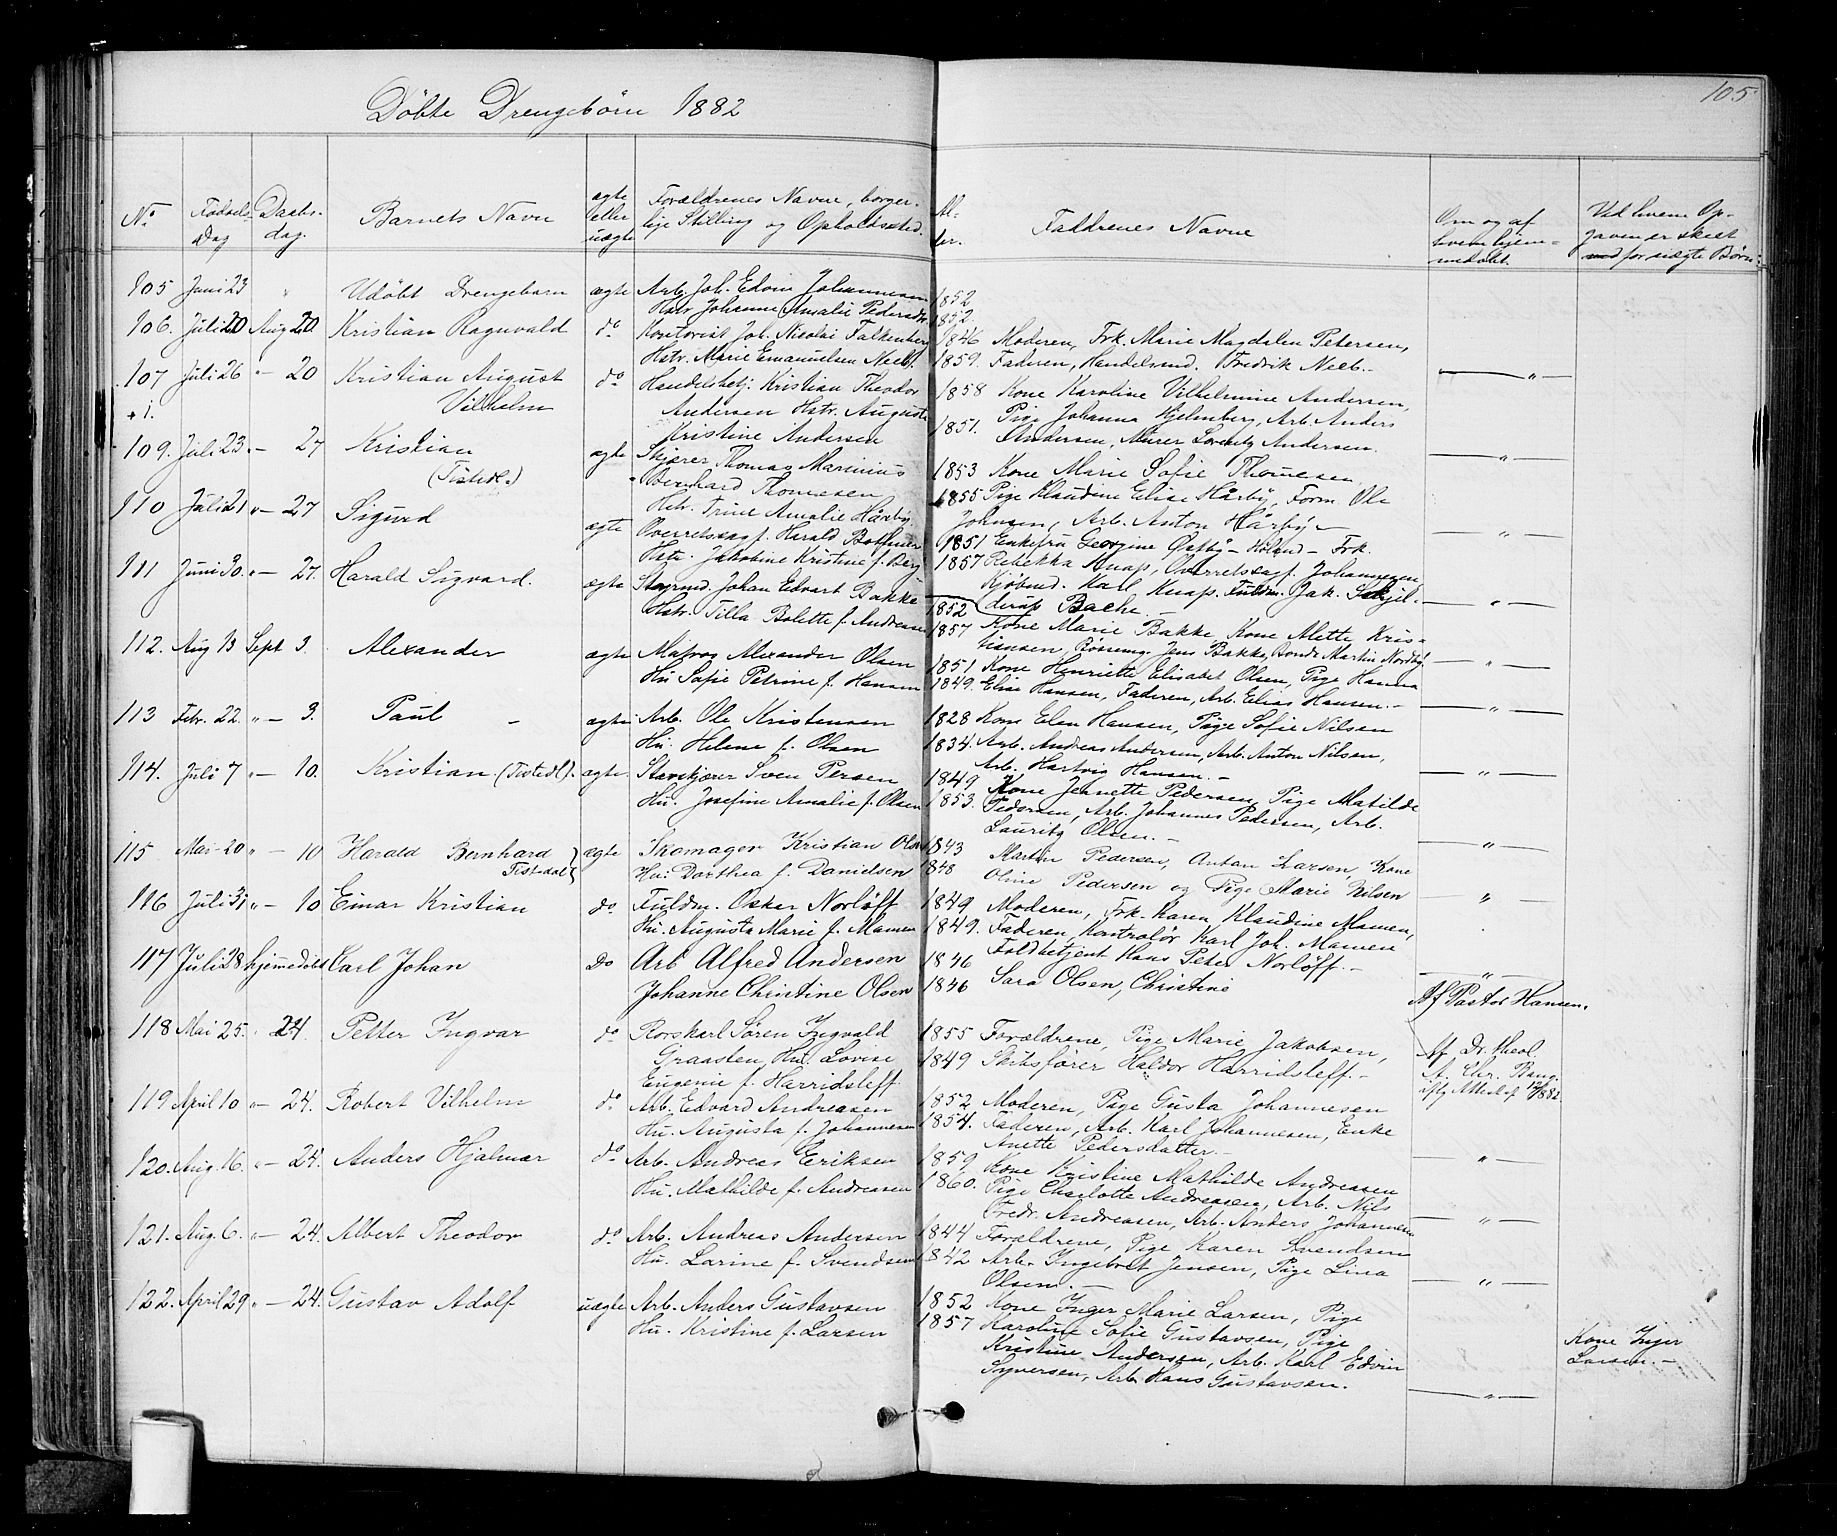 105
Döbte Drengebörn 1882
No
Födsels-Dag
Daabs-dag.
Barnets Navn
ægte eller uægte
Forældrenes Navne, borgerlige Stilling og Opholdssted.
Al-der.
Faddrenes Navne
Om og af hvem hjemmedöbt.
Ved hvem Opgaven er skeet med for uægte Börn.
105 Juni 23 " Udöbt Drengebarn ægte Arb. Joh. Edvin Johannesen 1852
Hstr Johanne Amalie Pedersdtr 1852.
106. Juli 20 Aug 20. Kristian Ragnvald do. Kontorist Joh. Nicolai Falkenberg 1846 Moderen, Frk. Marie Magdalen Petersen,
Hstr. Marie Emanuelsen Neeb. 1859. Faderen, Handelsmd. Fredrik Neeb. — " —
107 Juli 26 " — 20 Kristian August do. Handelsbetj. Kristian Theodor 1858 Kone Karoline Vilhelmine Andersen,
+ 1. Vilhelm Andersen Hstr. Augusta Pige Johanna Hjelmberg, Arb. Anders
Kristine Andersen 1851. Andersen, Murer Lorentz Andersen. — " —
109. Juli 23. — 27 Kristian ægte Skjærer Thomas Marinius 1853 Kone Marie Sofie Thomesen
(Tistedl.) Bernhard Thomesen 1855 Pige Klaudine Elise Hårby, Form. Ole
Hstr. Trine Amalie Hårby. Johnsen, Arb. Anton Hårby — — " —
110 Juli 21 " — 27 Sigurd ægte Overretssagf. Harald Bothner 1851 Enkefru Georgine Östby — Höland — Frk.
Hstr. Jakobine Kristine f. Berg 1857 Rebekka Knap, Overretssagf. Johannesen,
111 Juni 30. " — 27. Harald Sigvard. ægte Stuermd. Johan Edvart Bakke Kjöbmd. Karl Knap. Fuldm. Jak. Skjel-
Hstr. Tilla Bolette f. Andreasen 1852 derup Bache. — " —
1857 Kone Marie Bakke, Kone Alette Kris-
112. Aug 13 Sept 3. Alexander ægte Matros Alexander Olsen tiansen, Jens Bakke, Bonde Martin Nordby — " —
Hu Sofie Petrine f. Hansen 1851 Kone Henriette Elisabet Olsen, Pige Hanna
1849. Elise Hansen, Faderen, Arb. Elias Hansen. — — " —
113 Febr. 22. " — 3. Paul — ægte Arb. Ole Kristensen 1828 Kone Elen Hansen, Pige Sofie Nilsen
Hu. Helene f. Olsen 1834. Arb. Andreas Andersen, Arb. Anton Nilsen,
Arb. Hartvig Hansen. — — " —
114. Juli 7 " — 10. Kristian. (Tistedl). ægte Stavskjærer Sven Persen 1849 Kone Jeanette Pedersen, Pige Matilde
Hu. Josefine Amalie f. Olsen 1853. Pedersen, Arb. Johannes Pedersen, Arb.
Lauritz Olsen. — — " —
115 Mai 20 " — 10 Harald Bernhard ægte Skomager Kristian Olsen 1843 Martin Pedersen, Anton Larsen, Kone
Tistedal Hu: Dorthea f. Danielsen 1848 Oline Pedersen og Pige Marie Nilsen " —
116 Juli 31 " — 10 Einar Kristian do. Fuldm. Oskar Norlöff 1849 Moderen, Frk. Karen Klaudine Mamen,
Hu. Augusta Marie f. Mamen 1849. Faderen, Kontrolör Karl Joh. Mamen
Toldbetjent Hans Peter Norlöff. — — " —
117 Juli 28 hjemmedöbt Carl Johan Do Arb Alfred Andersen 1846 Sara Olsen, Christine
Johanne Christine Olsen 1846 Af Pastor Hansen.
118 Mai 25. " 24. Petter Ingvar do Rorskarl Sören Ingvald 1855 Forældrene, Pige Marie Jakobsen,
Graasten, Hu. Lovise 1849 Skibsförer Haldor Harridsleff. — Af Dr. theol.
Eugenie f. Harridsleff. A. Chr. Bang
119 April 10 " — 24. Robert Vilhelm do. Arb. Edvard Andreasen 1852 Moderen, Pige Gusta Johannesen iflg Attest af 12/8 82.
Hu. Augusta f. Johannesen 1854. Faderen, Arb. Karl Johannesen, Enke
Anette Pedersdatter. — — " —
120. Aug. 16. " — 24. Anders Hjalmar do Arb. Andreas Eriksen 1859 Kone Kristine Mathilde Andreasen
Hu. Mathilde f. Andreasen 1860. Pige Charlotte Andreasen, Arb. Nils
Fredr. Andreasen, Arb. Anders Johannesen — " —
121. Aug. 6. " — 24. Albert Theodor do Arb. Andreas Andersen 1844 Forældrene, Pige Karen Svendsen
Hu. Larine f. Svendsen 1842 Arb. Ingebret Jensen, Pige Lina
Olsen. — — " —
122. April 29 " — 24. Gustav Adolf uægte Arb. Anders Gustavsen 1852 Kone Inger Marie Larsen, Pige
Hu. Kristine f. Larsen 1857 Karoline Sofie Gustavsen, Pige Kone Inger
Kristine Andersen, Arb. Karl Edvin Larsen. —
Syversen, Arb. Hans Gustavsen. — " —